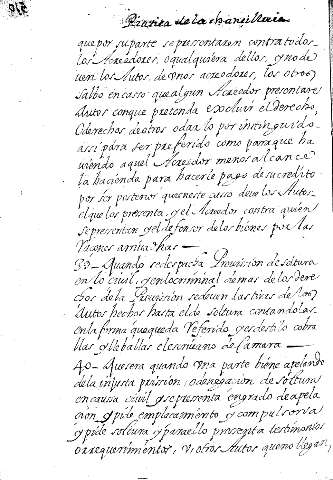 Pratica de la chansilleria
que por su parte se presentaren contra todos
los Acreedores, o qualquiera dellos, y no de
ven los Autos, de unos acreedores, los otros
salbo en casso que algun Acreedor presentare
Autos con que pretenda excluir el derecho,
o derechos de otros o dar lo por instinguido
assi para ser preferido como para que ha
viendo aquel Acreedor menos alcance
la hacienda para hacerle pago de su credito
por ser posterior que en este casso deve los Autos
el que los presenta, y el Acreedor contra quien
se presentan y el defensor de los bienes por las
razones arriba dhas —
39 — Quando se despacha Provission de soltura
en lo civil, y en lo criminal demas de los dere
chos de la Provission se deven las tiras de los
Autos hechos hasta el de soltura contandolas
en la forma que queda referido, y es estilo cobra
llas, y llebarllas el escrivano de Camara —
40 — Quesera quando una parte biene apelando
de la injusta prission, o denegacion de soltura
en causa civil y se presenta en grado de apela
cion y pide emplacamiento, y compulsoria
y pide soltura y para ello presenta testimonios
o requerimientos, u otros Autos que no llegan,